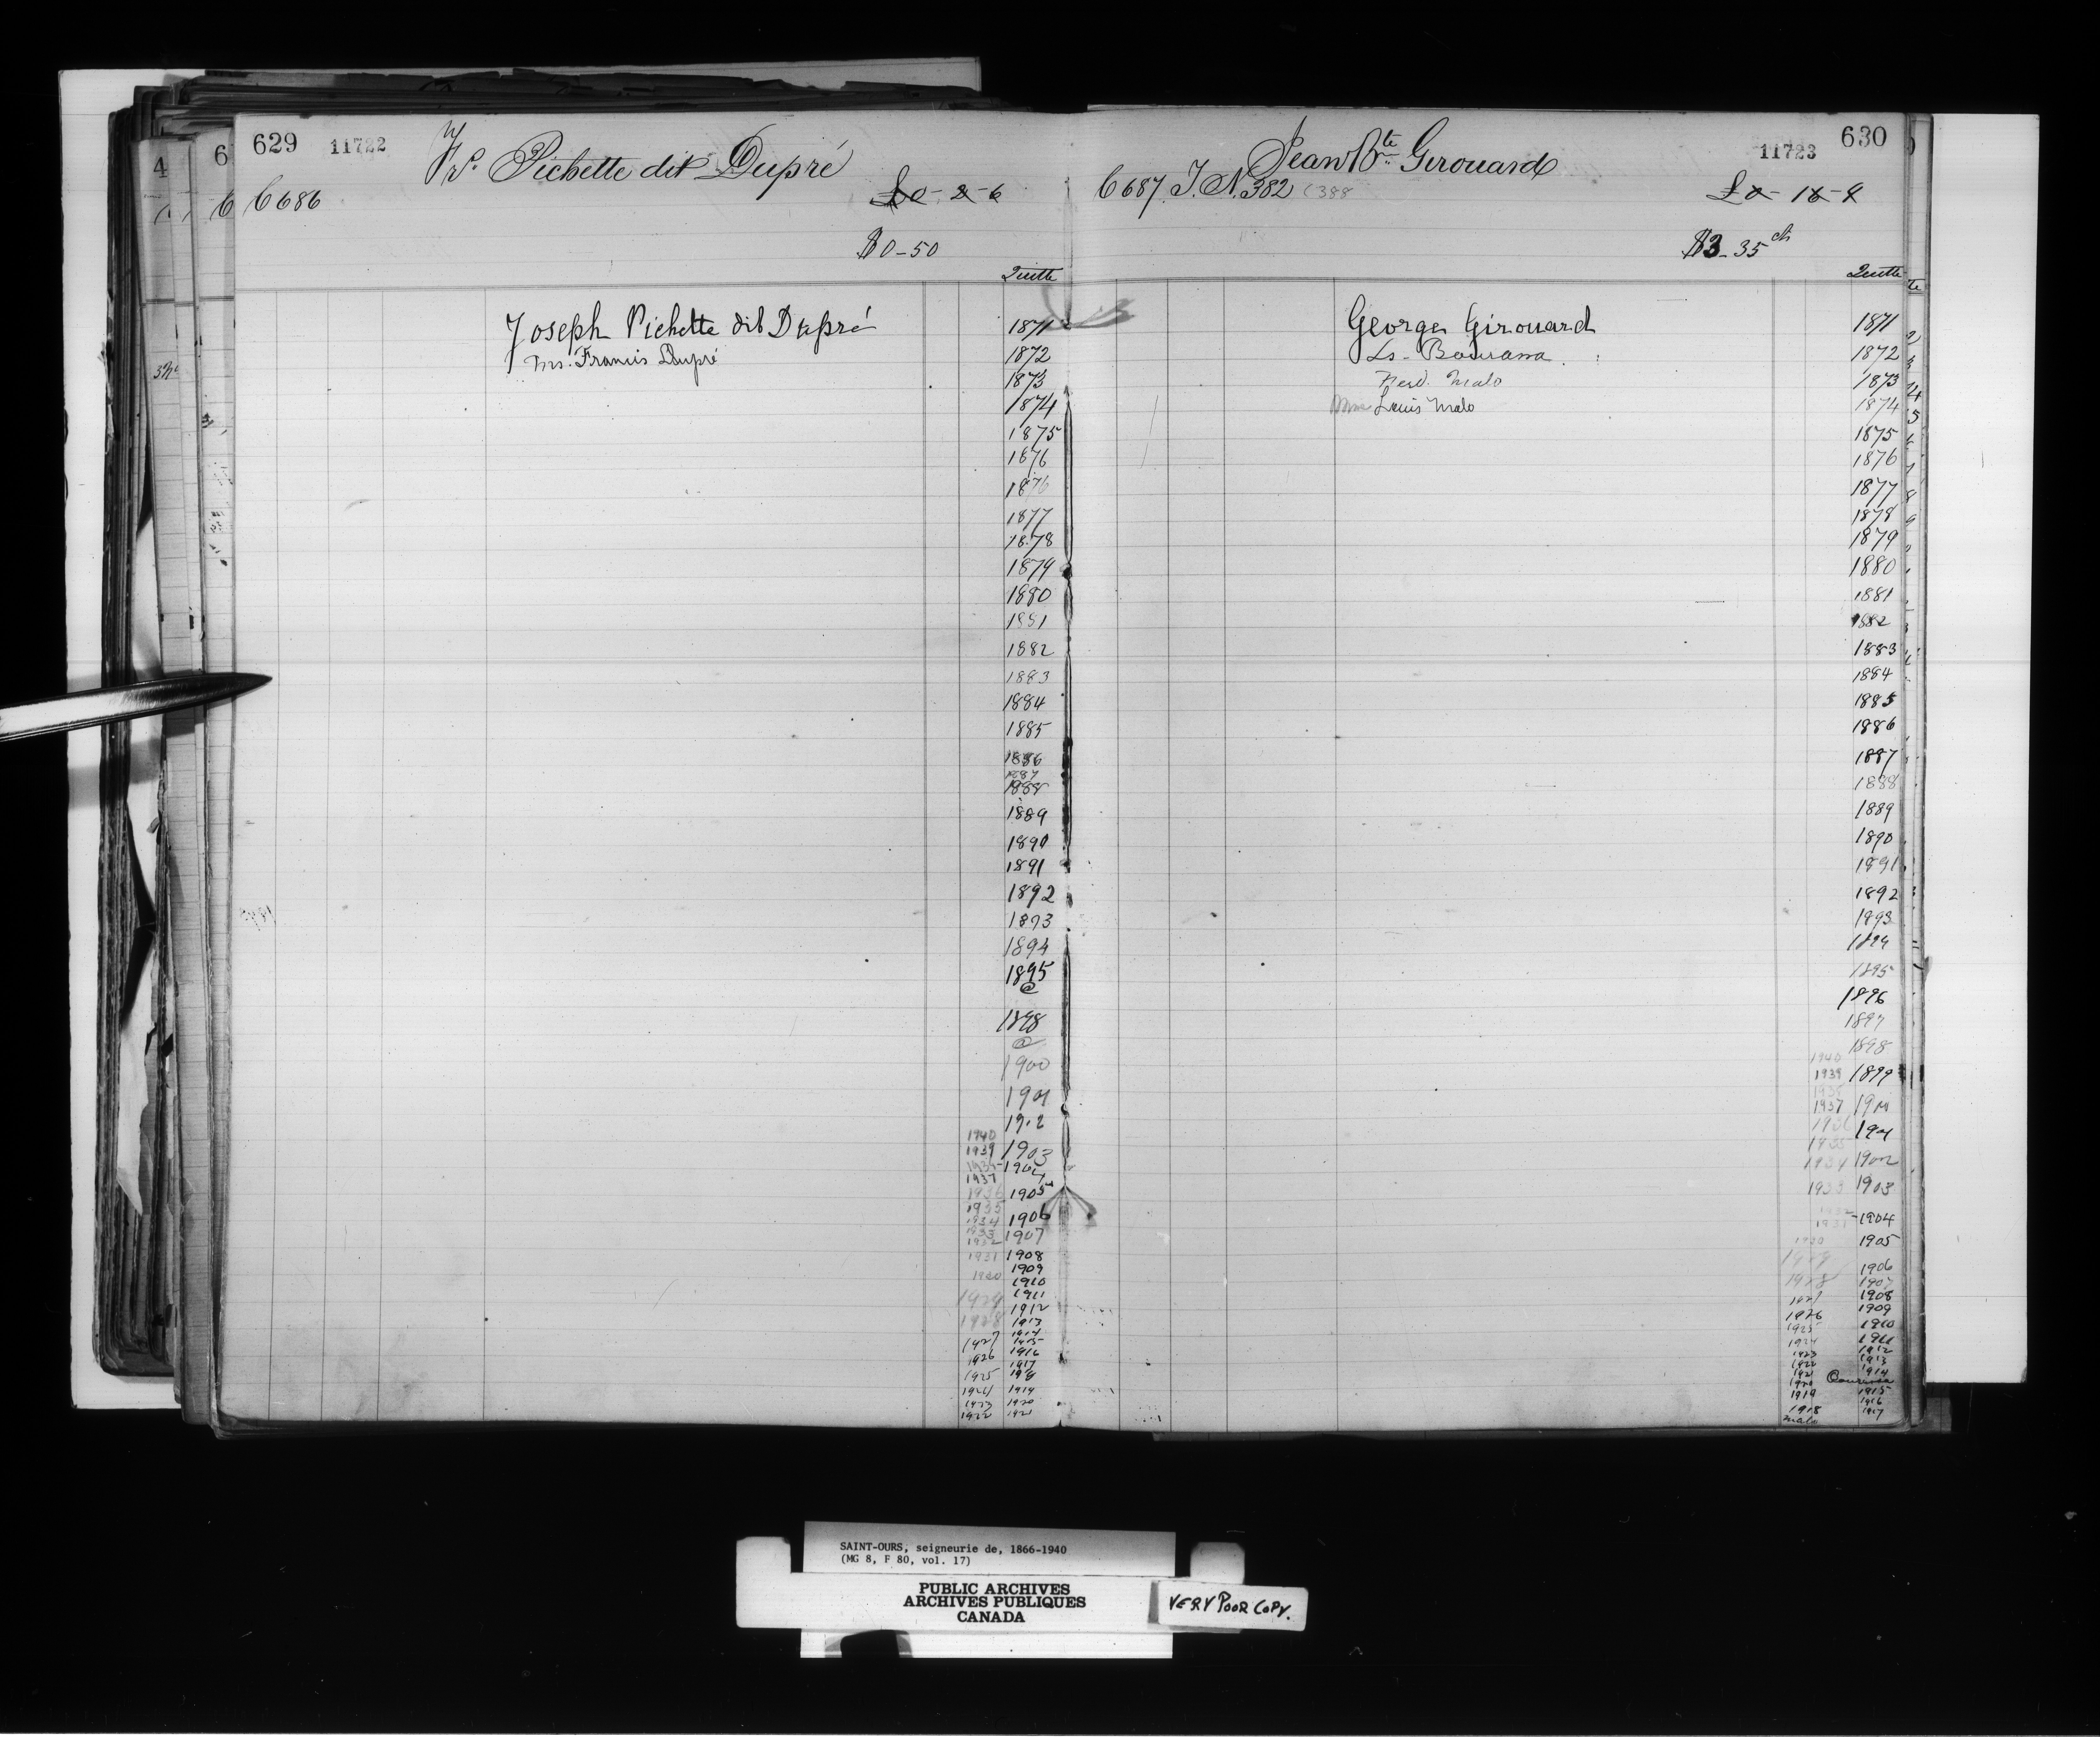 629 11722 Frs. Pichette dit Dupré
C 686 £0-2-6
$0-50
Quitte
Joseph Pichette dit Dupré 1871
Mrs. Francis Dupré 1872
1873
1874
1875
1876
1876
1877
1878
1879
1880
1881
1882
1883
1884
1885
1886
1887
1888
1889
1890
1891
1892
1893
1894
1895
@
1898
@
1900
1901
1902
1940
1939 1903
1904
1937
1936 1905
1935
1934 1906
1933 1907
1932
1931 1908
1909
1930 1910
1929 1911
1912
1928 1913
1914
1927 1915
1926 1916
1917
1925 1918
1924 1919
1923 1920
1922 1921
Jean Bte Girouard 11723 630
C 687 T. N. 382 C388 £0-16-9
$3-35 cts
Quitte
George Girouard 1871
Ls. Bourassa 1872
Ferd. Malo 1873
Mme Louis Malo 1874
1875
1876
1877
1878
1879
1880
1881
1882
1883
1884
1885
1886
1887
1888
1889
1890
1891
1892
1893
1894
1895
1896
1897
1898
1940
1939 1899
1937 1900
1936
1935 1901
1934 1902
1933 1903
1932
1931 1904
1930 1905
1929 1906
1928 1907
1927 1908
1926 1909
1925 1910
1924 1911
1923 1912
1922 1913
1921 1914
1920 Bourassa
1919 1915
1916
1918 1917
Malo
SAINT-OURS, seigneurie de, 1866-1940
(MG 8, F 80, vol. 17)
PUBLIC ARCHIVES
ARCHIVES PUBLIQUES
CANADA
VERY POOR COPY.